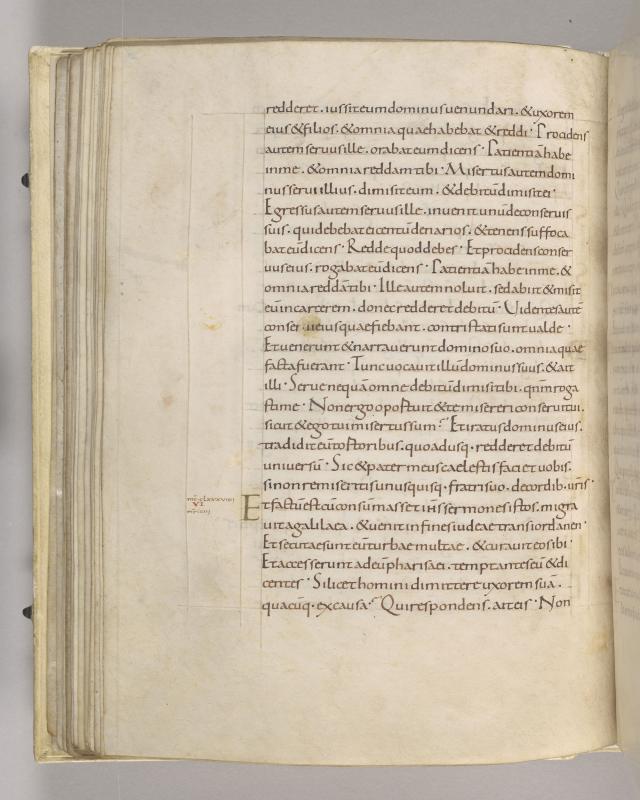 redderet. iussit eum dominus uenundari. & uxorem
eius & filios. & omnia quae habebat & reddi· Procidens
autem seruus ille. orabat eum dicens· Patientiā habe
in me. & omnia reddam tibi· Misertus autem domi
nus serui illius. dimisit eum. & debitū dimisit ei·
Egressus autem seruus ille. inuenit unū de conseruis
suis. qui debebat ei centū denarios. & tenens suffoca
bat eū dicens· Redde quod debes· Et procidens conser
uus eius. rogabat eū dicens· Patientiā habe in me. &
omnia reddā tibi· Ille autem noluit. sed abiit & misit
eū in carcerem. donec redderet debitū· Uidentes autē
conserui eius quae fiebant. contristati sunt ualde·
Et uenerunt & narrauerunt domino suo. omnia quae
facta fuerant· Tunc uocauit illū dominus suus. & ait
illi· Serue nequā omne debitū dimisi tibi. qnm roga
sti me· Non ergo oportuit & te misereri conserui tui.
sicut & ego tui misertus sum? Et iratus dominus eius.
tradidit eū tortoribus. quo adusq. redderet debitū
uniuersū· Sic & pater meus caelestis faciet uobis.
si non remiseritis unusquisq. fratri suo. de cordib. uris·
Et factū est cū consūmasset ihs sermones istos. migra
VI
uit a galilaea. & uenit in fines iudeae trans iordanen·
Et secutae sunt eū turbae multae. & curauit eos ibi·
Et accesserunt ad eū pharisaei. temptantes eū & di
centes· Si licet homini dimittere uxorem suā.
quacūq. ex causa? Qui respondens. ait eis· Non